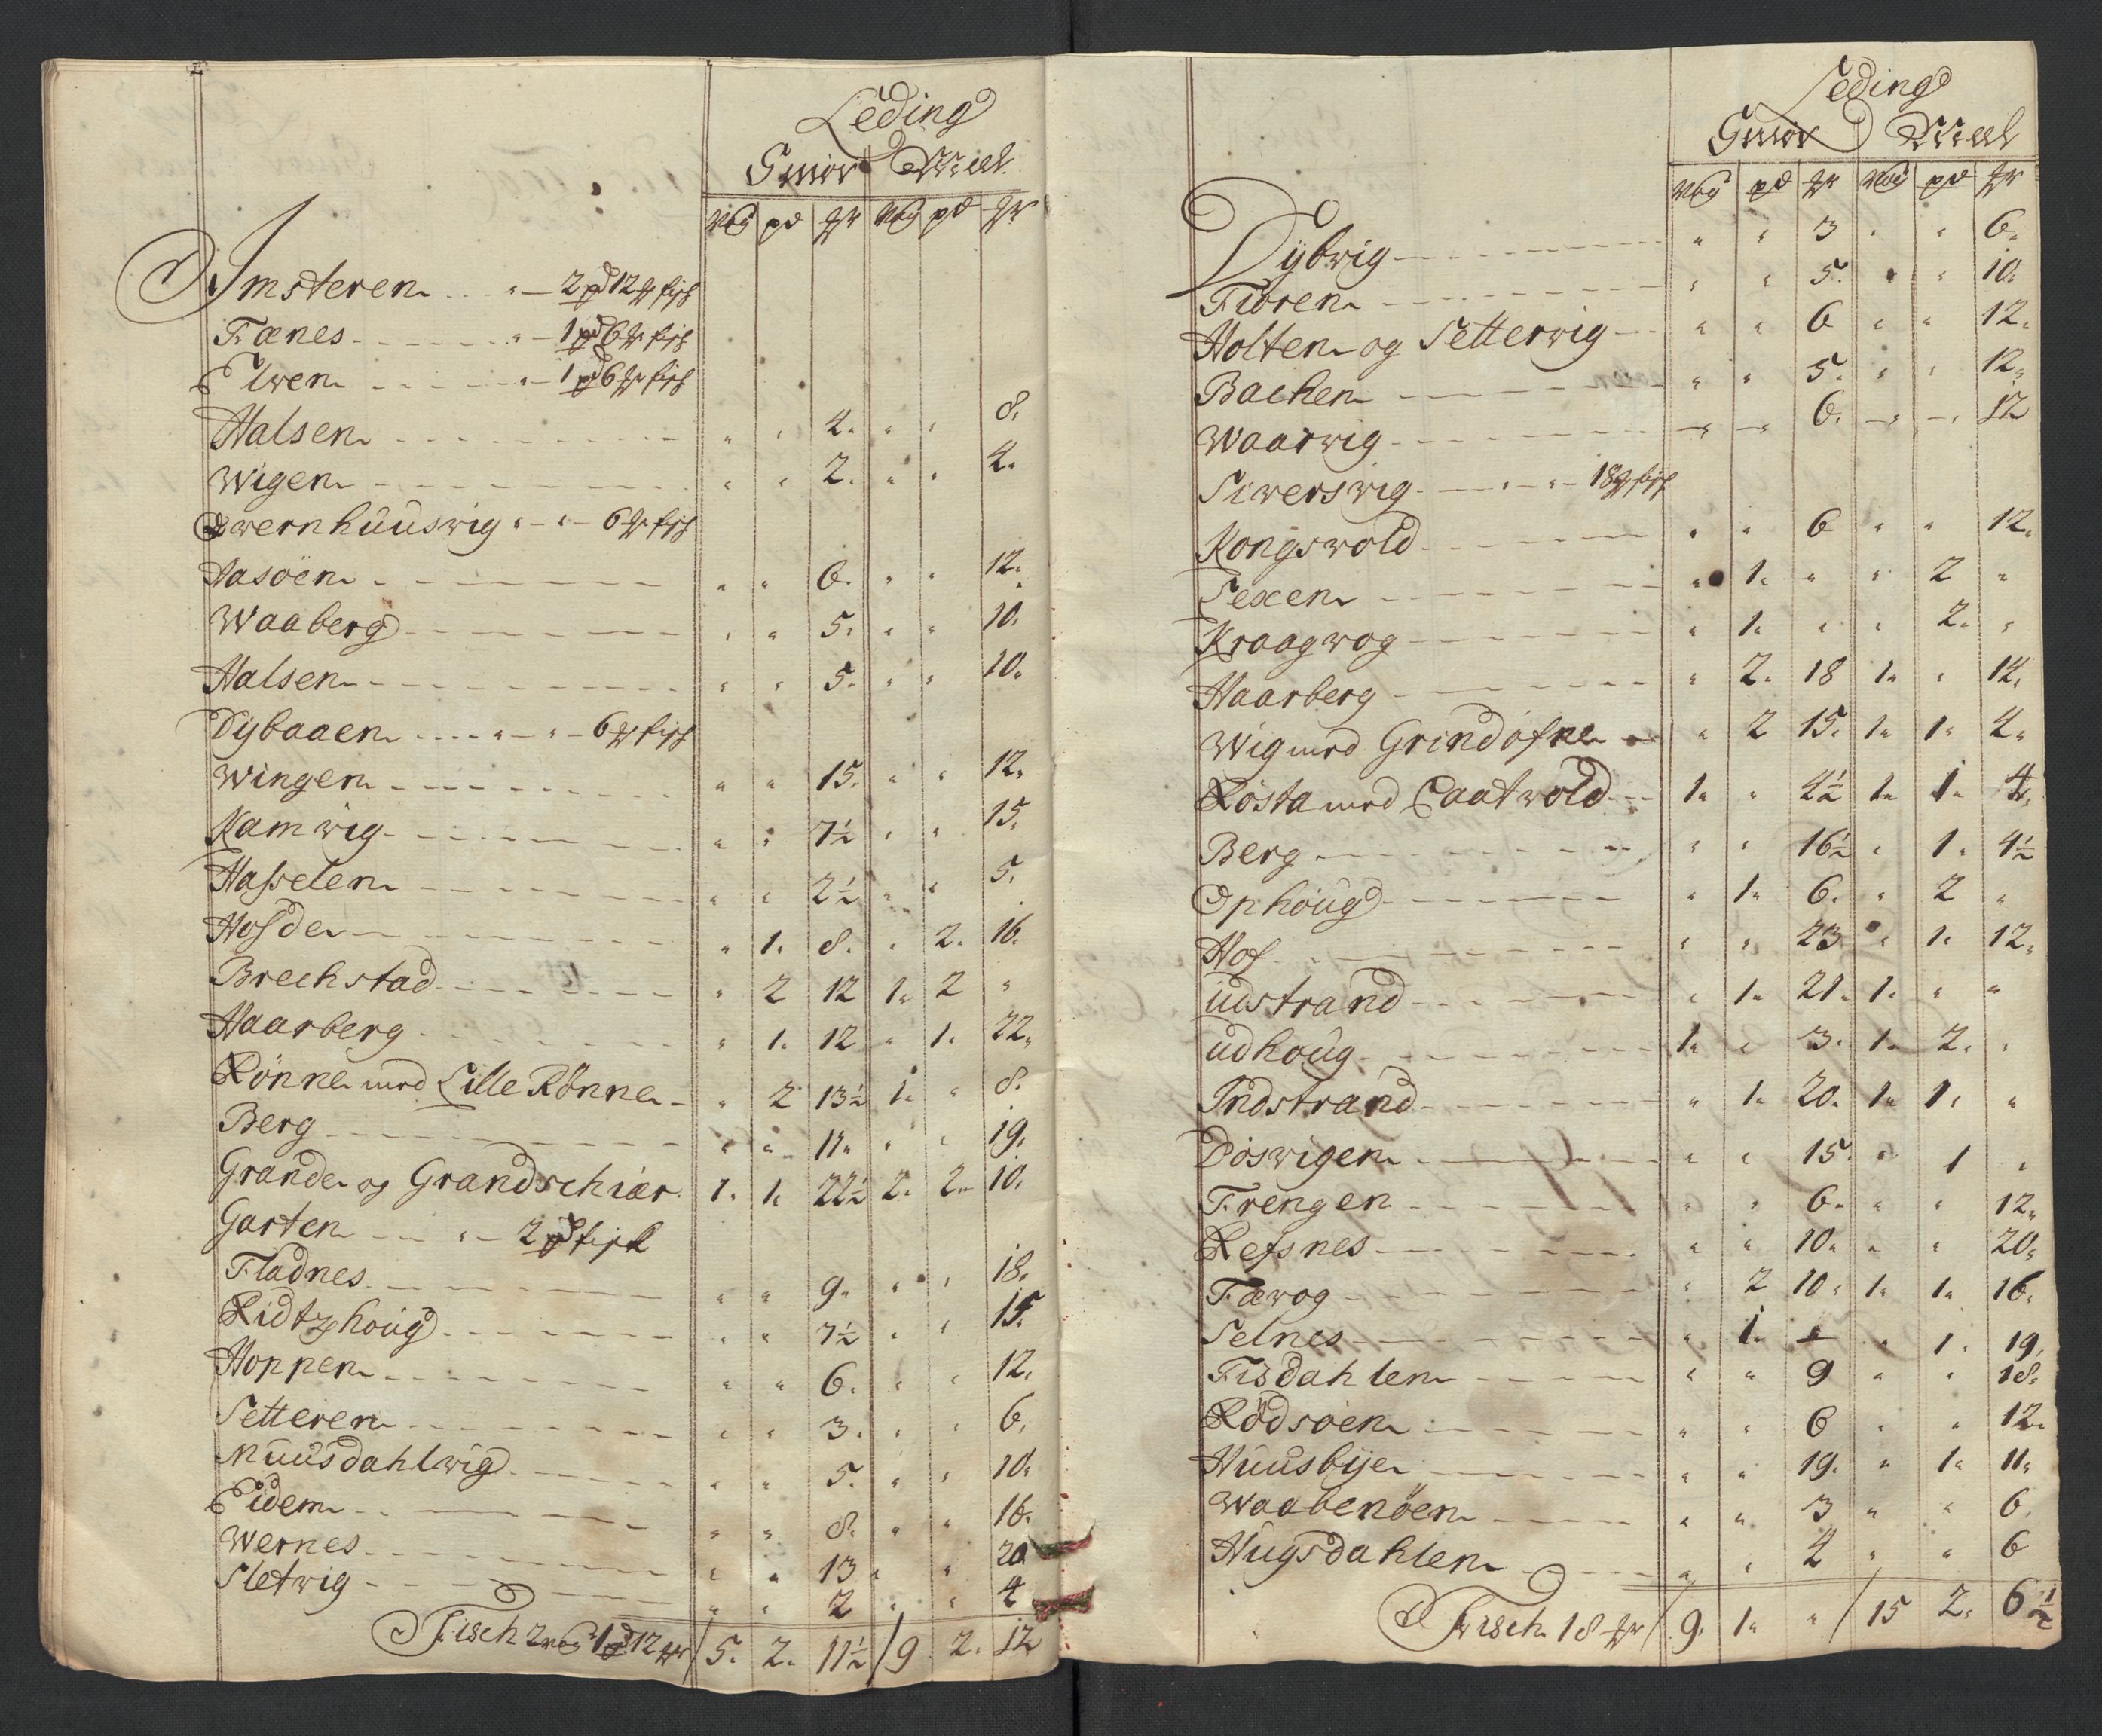 Leding
Smør Meel
Wog pd ℔r Wog pd ℔r
Imsteren " 2 pd 12 ℔r fisk
Fænes " 1 pd 6 ℔r fisk
Elven " 1 pd 6 ℔r fisk
Halsen " " 4. " " 8.
Wigen " " 2. " " 4.
Qwernhuuswig " " 6 ℔r fisk
Aasöen " " 6. " " 12.
Waaberg " " 5. " " 10.
Halsen " " 5. " " 10.
Dybaaen " " 6 ℔r fisk
Wingen " " 15. " " 12.
Kamwig " " 7½ " " 15.
Hasselen " " 2½ " " 5.
Hofde " 1. 8. " 2. 16.
Brechstad " 2 12 1. 2 "
Haarberg " 1. 12 " 1. 22.
Rönne med Lille Rönne " 2 13½ 1. " 8.
Berg " " 11. " " 19.
Grande og Grandschiær 1. 1. 22½ 2. 2. 10.
Garten " 2 pd fisk
Fladnes " " 9. " " 18.
Ridtzhoug " " 7½ " " 15.
Hoppen " " 6. " " 12.
Setteren " " 3. " " 6.
Muusdahlwig " " 5. " " 10.
Eidem " " 8. " " 16.
Wernes " " 13 " " 20
Sletwig " " 2 " " 4
Fisch 2 wog 1 pd 12 ℔r / 5. 2. 11½ / 9 2. 12
Leding
Smör Meel
Wog pd ℔r Wog pd ℔r
Dybwig " " 3 " " 6.
Fioren " " 5. " " 10.
Holten og Setterwig " " 6 " " 12.
Bachen " " 5. " " 12.
Waarwig " " 6. " " 12
Siwerswig " " 18 ℔r fisk
Kongswold " " 6 " " 12.
Sexen " 1. " " 2 "
Kraagwog " 1. " " 2. "
Haarberg " 2. 18 1. " 14.
Wig med Grindofne " 2 15. 1. 1. 4.
Rösta med Caatwold 1. " 4½ 1. 1. 4.
Berg " " 16½ " 1. 4½
Ophoug " 1. 6. " 2 "
Hof " " 23 " 1. 12.
Udstrand " 1. 21. 1. " "
Udhoug 1. " 3. 1. 2. "
Indstrand " 1. 20. 1. 1. "
Döswigen " " 15. " 1 "
Frengen " " 6. " " 12.
Refsnes " " 10. " " 20.
Fæwog " 2 10. 1. 1. 16.
Selnes " 1. " " 1. 19.
Fisdahlen " " 9 " " 18.
Rödsöen " " 6 " " 12.
Huusbye " " 19. " 1. 11.
Waabenöen " " 3 " " 6.
Hugsdahlen " " 4 " " 6
Fisch 18 ℔r / 9. 1. " / 15 2. 6½